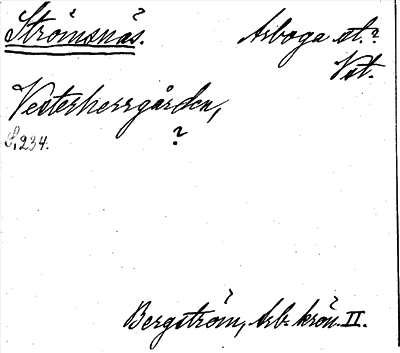 Strömsnäs. Arboga st.?
Vst.
Vesterherrgården,
S, 234. ?
Bergström, Arb. krön. II.